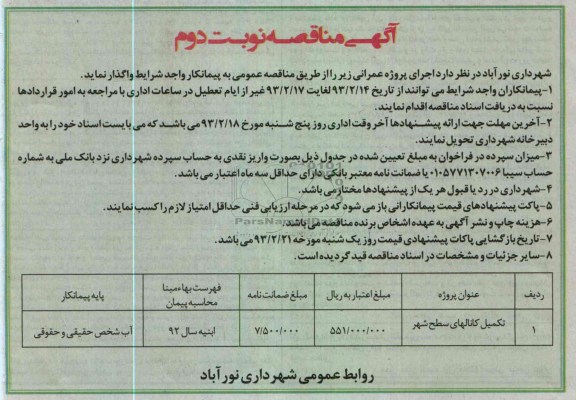 آگهی مناقصه نوبت دوم
شهرداری نورآباد در نظر دارد اجرای پروژه عمرانی زیر را از طریق مناقصه عمومی به پیمانکار واجد شرایط واگذار نماید.
۱-پیمانکاران واجد شرایط می توانند از تاریخ ۹۳/۲/۱۴ لغایت ۹۳/۲/۱۷ غیر از ایام تعطیل در ساعات اداری با مراجعه به امور قراردادها
نسبت به دریافت اسناد مناقصه اقدام نمایند.
۲-آخرین مهلت جهت ارائه پیشنهادها آخر وقت اداری روز پنج شنبه مورخ ۹۳/۲/۱۸ می باشد که می بایست اسناد خود را به واحد
دبیرخانه شهرداری تحویل نمایند.
۳-میزان سپرده در فراخوان به مبلغ تعیین شده در جدول ذیل بصورت واریز نقدی به حساب سپرده شهرداری نزد بانک ملی به شماره
حساب سیبا ۰۱۰۵۷۷۱۳۰۷۰۰۶ یا ضمانت نامه معتبر بانکی دارای حداقل سه ماه اعتبار می باشد.
۴-شهرداری در رد یا قبول هر یک از پیشنهادها مختار می باشد.
۵-پاکت پیشنهادهای قیمت پیمانکارانی باز می شود که در مرحله ارزیابی فنی حداقل امتیاز لازم را کسب نمایند.
۶-هزینه چاپ و نشر آگهی به عهده اشخاص برنده مناقصه می باشد.
۷-تاریخ بازگشایی پاکات پیشنهادی قیمت روز یک شنبه مورخه ۹۳/۲/۲۱ می باشد.
۸-سایر جزئیات و مشخصات در اسناد مناقصه قید گردیده است.
ردیف عنوان پروژه مبلغ اعتبار به ریال مبلغ ضمانت نامه فهرست بهاء مبنا محاسبه پیمان پایه پیمانکار
۱ تکمیل کانالهای سطح شهر ۵۵۱/۰۰۰/۰۰۰ ۷/۵۰۰/۰۰۰ ابنیه سال ۹۲ آب شخص حقیقی و حقوقی
روابط عمومی شهرداری نورآباد